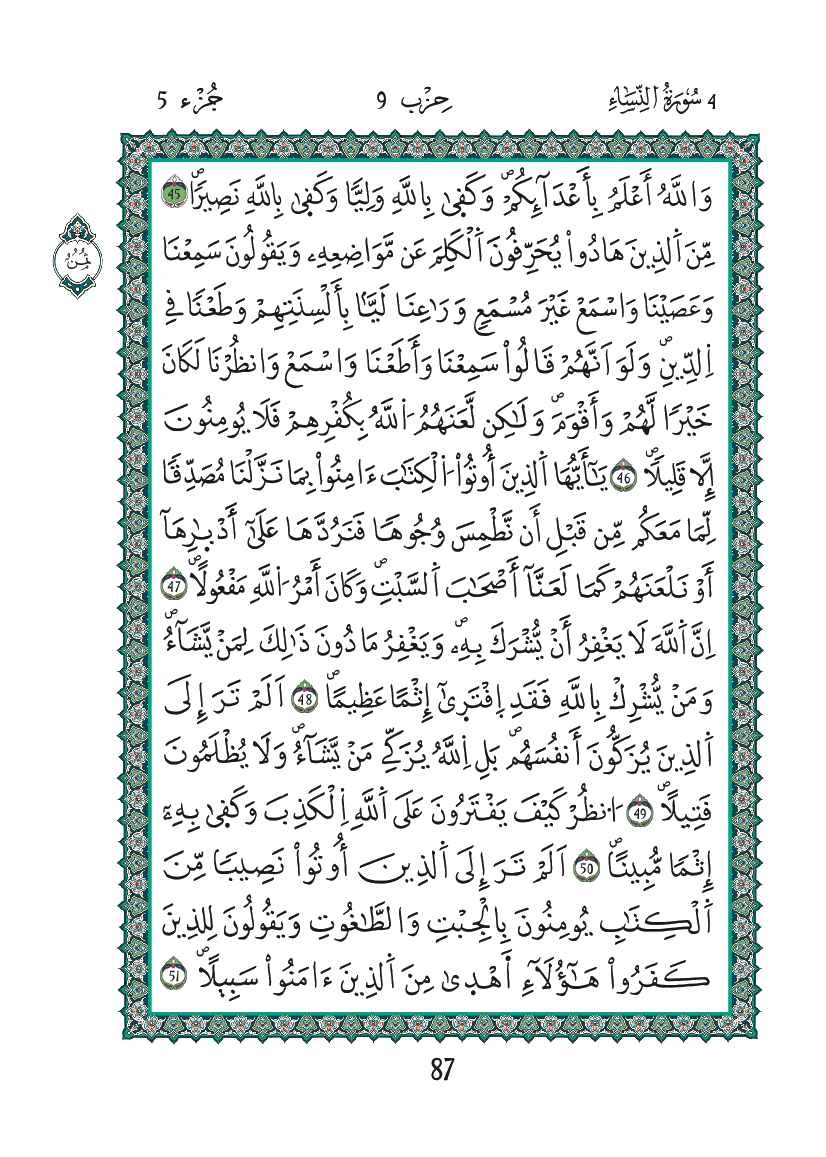 4 سُورَةُ النِّسَاءِ
حِزْب 9
جُزْء 5
وَاللَّهُ أَعْلَمُ بِأَعْدَآئِكُمْۖ وَكَفٜىٰ بِاللَّهِ وَلِيّٗا وَكَفٜىٰ بِاللَّهِ نَصِيرٗاۖ 45
ثُمُنُ
مِّنَ اَ۬لذِينَ هَادُواْ يُحَرِّفُونَ اَ۬لْكَلِمَ عَن مَّوَاضِعِهِۦ وَيَقُولُونَ سَمِعْنَا
وَعَصَيْنَا وَاسْمَعْ غَيْرَ مُسْمَعٖ وَرَٰعِنَا لَيّاَۢ بِأَلْسِنَتِهِمْ وَطَعْناٗ فِے
اِ۬لدِّينِۖ وَلَوَ اَنَّهُمْ قَالُواْ سَمِعْنَا وَأَطَعْنَا وَاسْمَعْ وَانظُرْنَا لَكَانَ
خَيْراٗ لَّهُمْ وَأَقْوَمَۖ وَلَٰكِن لَّعَنَهُمُ اُ۬للَّهُ بِكُفْرِهِمْ فَلَا يُومِنُونَ
إِلَّا قَلِيلاٗۖ 46 يَٰٓأَيُّهَا اَ۬لذِينَ أُوتُواْ اُ۬لْكِتَٰبَ ءَامِنُواْ بِمَا نَزَّلْنَا مُصَدِّقاٗ
لِّمَا مَعَكُم مِّن قَبْلِ أَن نَّطْمِسَ وُجُوهاٗ فَنَرُدَّهَا عَلَىٰٓ أَدْبٰ۪رِهَآ
أَوْ نَلْعَنَهُمْ كَمَا لَعَنَّآ أَصْحَٰبَ اَ۬لسَّبْتِۖ وَكَانَ أَمْرُ اُ۬للَّهِ مَفْعُولاًۖ 47
اِنَّ اَ۬للَّهَ لَا يَغْفِرُ أَنْ يُّشْرَكَ بِهِۦۖ وَيَغْفِرُ مَا دُونَ ذَٰلِكَ لِمَنْ يَّشَآءُۖ
وَمَنْ يُّشْرِكْ بِاللَّهِ فَقَدِ اِ۪فْتَر۪ىٰٓ إِثْماً عَظِيماًۖ 48 اَلَمْ تَرَ إِلَى
اَ۬لذِينَ يُزَكُّونَ أَنفُسَهُمۖ بَلِ اِ۬للَّهُ يُزَكِّے مَنْ يَّشَآءُۖ وَلَا يُظْلَمُونَ
فَتِيلاًۖ 49 اَ۟نظُرْ كَيْفَ يَفْتَرُونَ عَلَى اَ۬للَّهِ اِ۬لْكَذِبَ وَكَفٜىٰ بِهِۦٓ
إِثْماٗ مُّبِيناًۖ 50 اَلَمْ تَرَ إِلَى اَ۬لذِينَ أُوتُواْ نَصِيباٗ مِّنَ
اَ۬لْكِتَٰبِ يُومِنُونَ بِالْجِبْتِ وَالطَّٰغُوتِ وَيَقُولُونَ لِلذِينَ
كَفَرُواْ هَٰٓؤُلَآءِ أَهْد۪ىٰ مِنَ اَ۬لذِينَ ءَامَنُواْ سَبِيلاًۖ 51
87